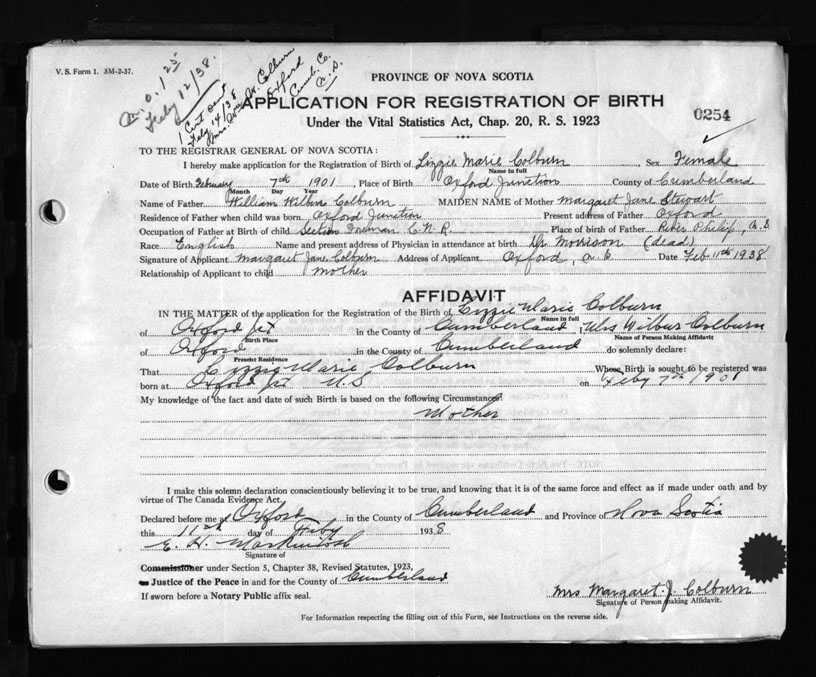 V. S. Form 1. 3M-2-37.
Feby 12/38.
1 Cert sent
Feby 14/38
Mrs. Wm. W. Colburn
Oxford
Cumb. Co.
N. S.
PROVINCE OF NOVA SCOTIA
APPLICATION FOR REGISTRATION OF BIRTH
0254
Under the Vital Statistics Act, Chap. 20, R. S. 1923
TO THE REGISTRAR GENERAL OF NOVA SCOTIA:
I hereby make application for the Registration of Birth of Lizzie Marie Colburn Sex Female
Name in full
Date of Birth February 7th 1901 Place of Birth Oxford Junction County of Cumberland
Month Day Year
Name of Father William Wilbur Colburn MAIDEN NAME of Mother Margaret Jane Stewart
Residence of Father when child was born Oxford Junction Present address of Father Oxford
Occupation of Father at Birth of child Section Foreman C.N.R. Place of Birth of Father River Philip, N.S.
Race English Name and present address of Physician in attendance at birth Dr Morrison (dead)
Signature of Applicant Margaret Jane Colburn Address of Applicant Oxford, N.S Date Feb 11th 1938
Relationship of Applicant to child mother
AFFIDAVIT
IN THE MATTER of the application for the Registration of the Birth of Lizzie Marie Colburn
Name in full
of Oxford Jct in the County of Cumberland ; Mrs Wilbur Colburn
Birth Place Name of Person Making Affidavit
of Oxford in the County of Cumberland do solemnly declare:
Present Residence
That Lizzie Marie Colburn Whose Birth is sought to be registered was
born at Oxford Jct N.S on Feby 7th 1901
My knowledge of the fact and date of such Birth is based on the following Circumstances.
Mother
I make this solemn declaration conscientiously believing it to be true, and knowing that it is of the same force and effect as if made under oath and by
virtue of The Canada Evidence Act.
Declared before me at Oxford in the County of Cumberland and Province of Nova Scotia
this 11th day of Feby 1938
E. H. MacKintosh
Signature of
Commissioner under Section 5, Chapter 38, Revised Statutes, 1923,
Justice of the Peace in and for the County of Cumberland
If sworn before a Notary Public affix seal.
Mrs Margaret. J. Colburn
Signature of Person making Affidavit.
For Information respecting the filling out of this Form, see Instructions on the reverse side.